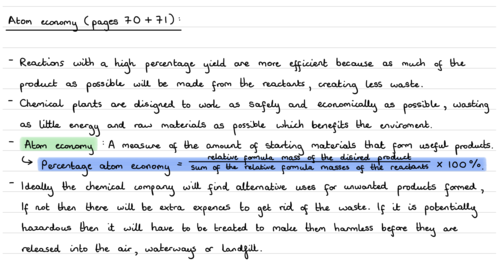 Atom economy (pages 70 + 71):
- Reactions with a high percentage yield are more efficient because as much of the
product as possible will be made from the reactants, creating less waste.
- Chemical plants are disigned to work as safely and economically as possible, wasting
as little energy and raw materials as possible which benefits the enviroment.
- Atom economy : A measure of the amount of starting materials that form useful products.
↳ Percentage atom economy = relative formula mass of the disired product / sum of the relative formula masses of the reactants × 100%.
- Ideally the chemical company will find alternative uses for unwanted products formed,
If not then there will be extra expences to get rid of the waste. If it is potentially
hazardous then it will have to be treated to make them harmless before they are
released into the air, waterways or landfill.